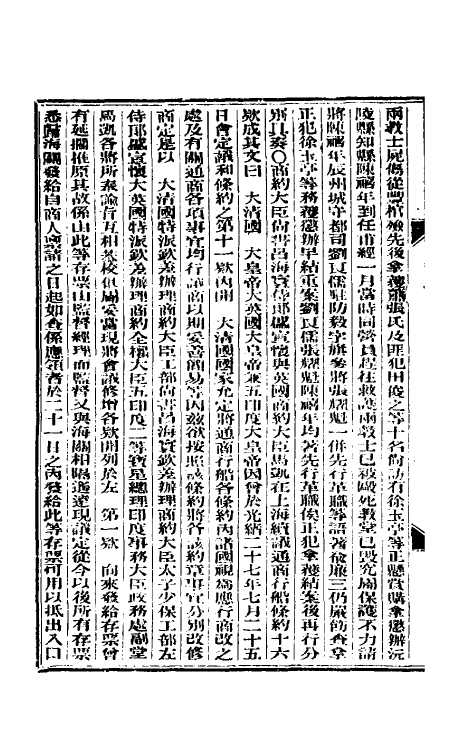 兩教士屍傷從豐棺殮先後拿獲蕭張氏及匪犯田俊之等十名飭訪有徐玉亭等正懸賞購拿懲辦沅
陵縣知縣陳禧年到任甫經一月當時同營員趕往救護兩教士已被毆死教堂已毀究屬保護不力請
將陳禧年辰州城守都司劉良儒駐防毅字旗參將張耀魁一併先行革職等語著俞廉三仍嚴飭查拿
正犯徐玉亭等務獲懲辦早結重案劉良儒張耀魁陳禧年均著先行革職俟正犯拿獲結案後再行分
別具奏〇商約大臣尚書呂海寰侍郎盛宣懷與英國商約大臣馬凱在上海續議通商行船條約十六
款成其文曰　大清國　大皇帝大英國大皇帝兼五印度大皇帝因會於光緒二十七年七月二十五
日會定議和條約之第十一款內開　大清國國家允定將通商行船各條約內諸國視為應行商改之
處及有關通商各項事宜均行議商以期妥善簡易等因茲欲按照該條約將各該約章事宜分別改修
商定是以　大清國特派欽差辦理商約大臣工部尚書呂海寰欽差辦理商約大臣太子少保工部左
侍郎盛宣懷大英國特派欽差辦理商約全權大臣五印度二等寶星總理印度事務大臣政務處副堂
馬凱各將所奉諭旨互相校閱俱屬妥當現將會議修增各款開列於左　第一款　向來發給存票曾
有延擱推原其故係由此等存票由監督經理而監督又與海關相隔遙遠現議定從今以後所有存票
悉歸海關發給自商人稟請之日起如查係應領者於二十一日之內發給此等存票可用以抵出入口